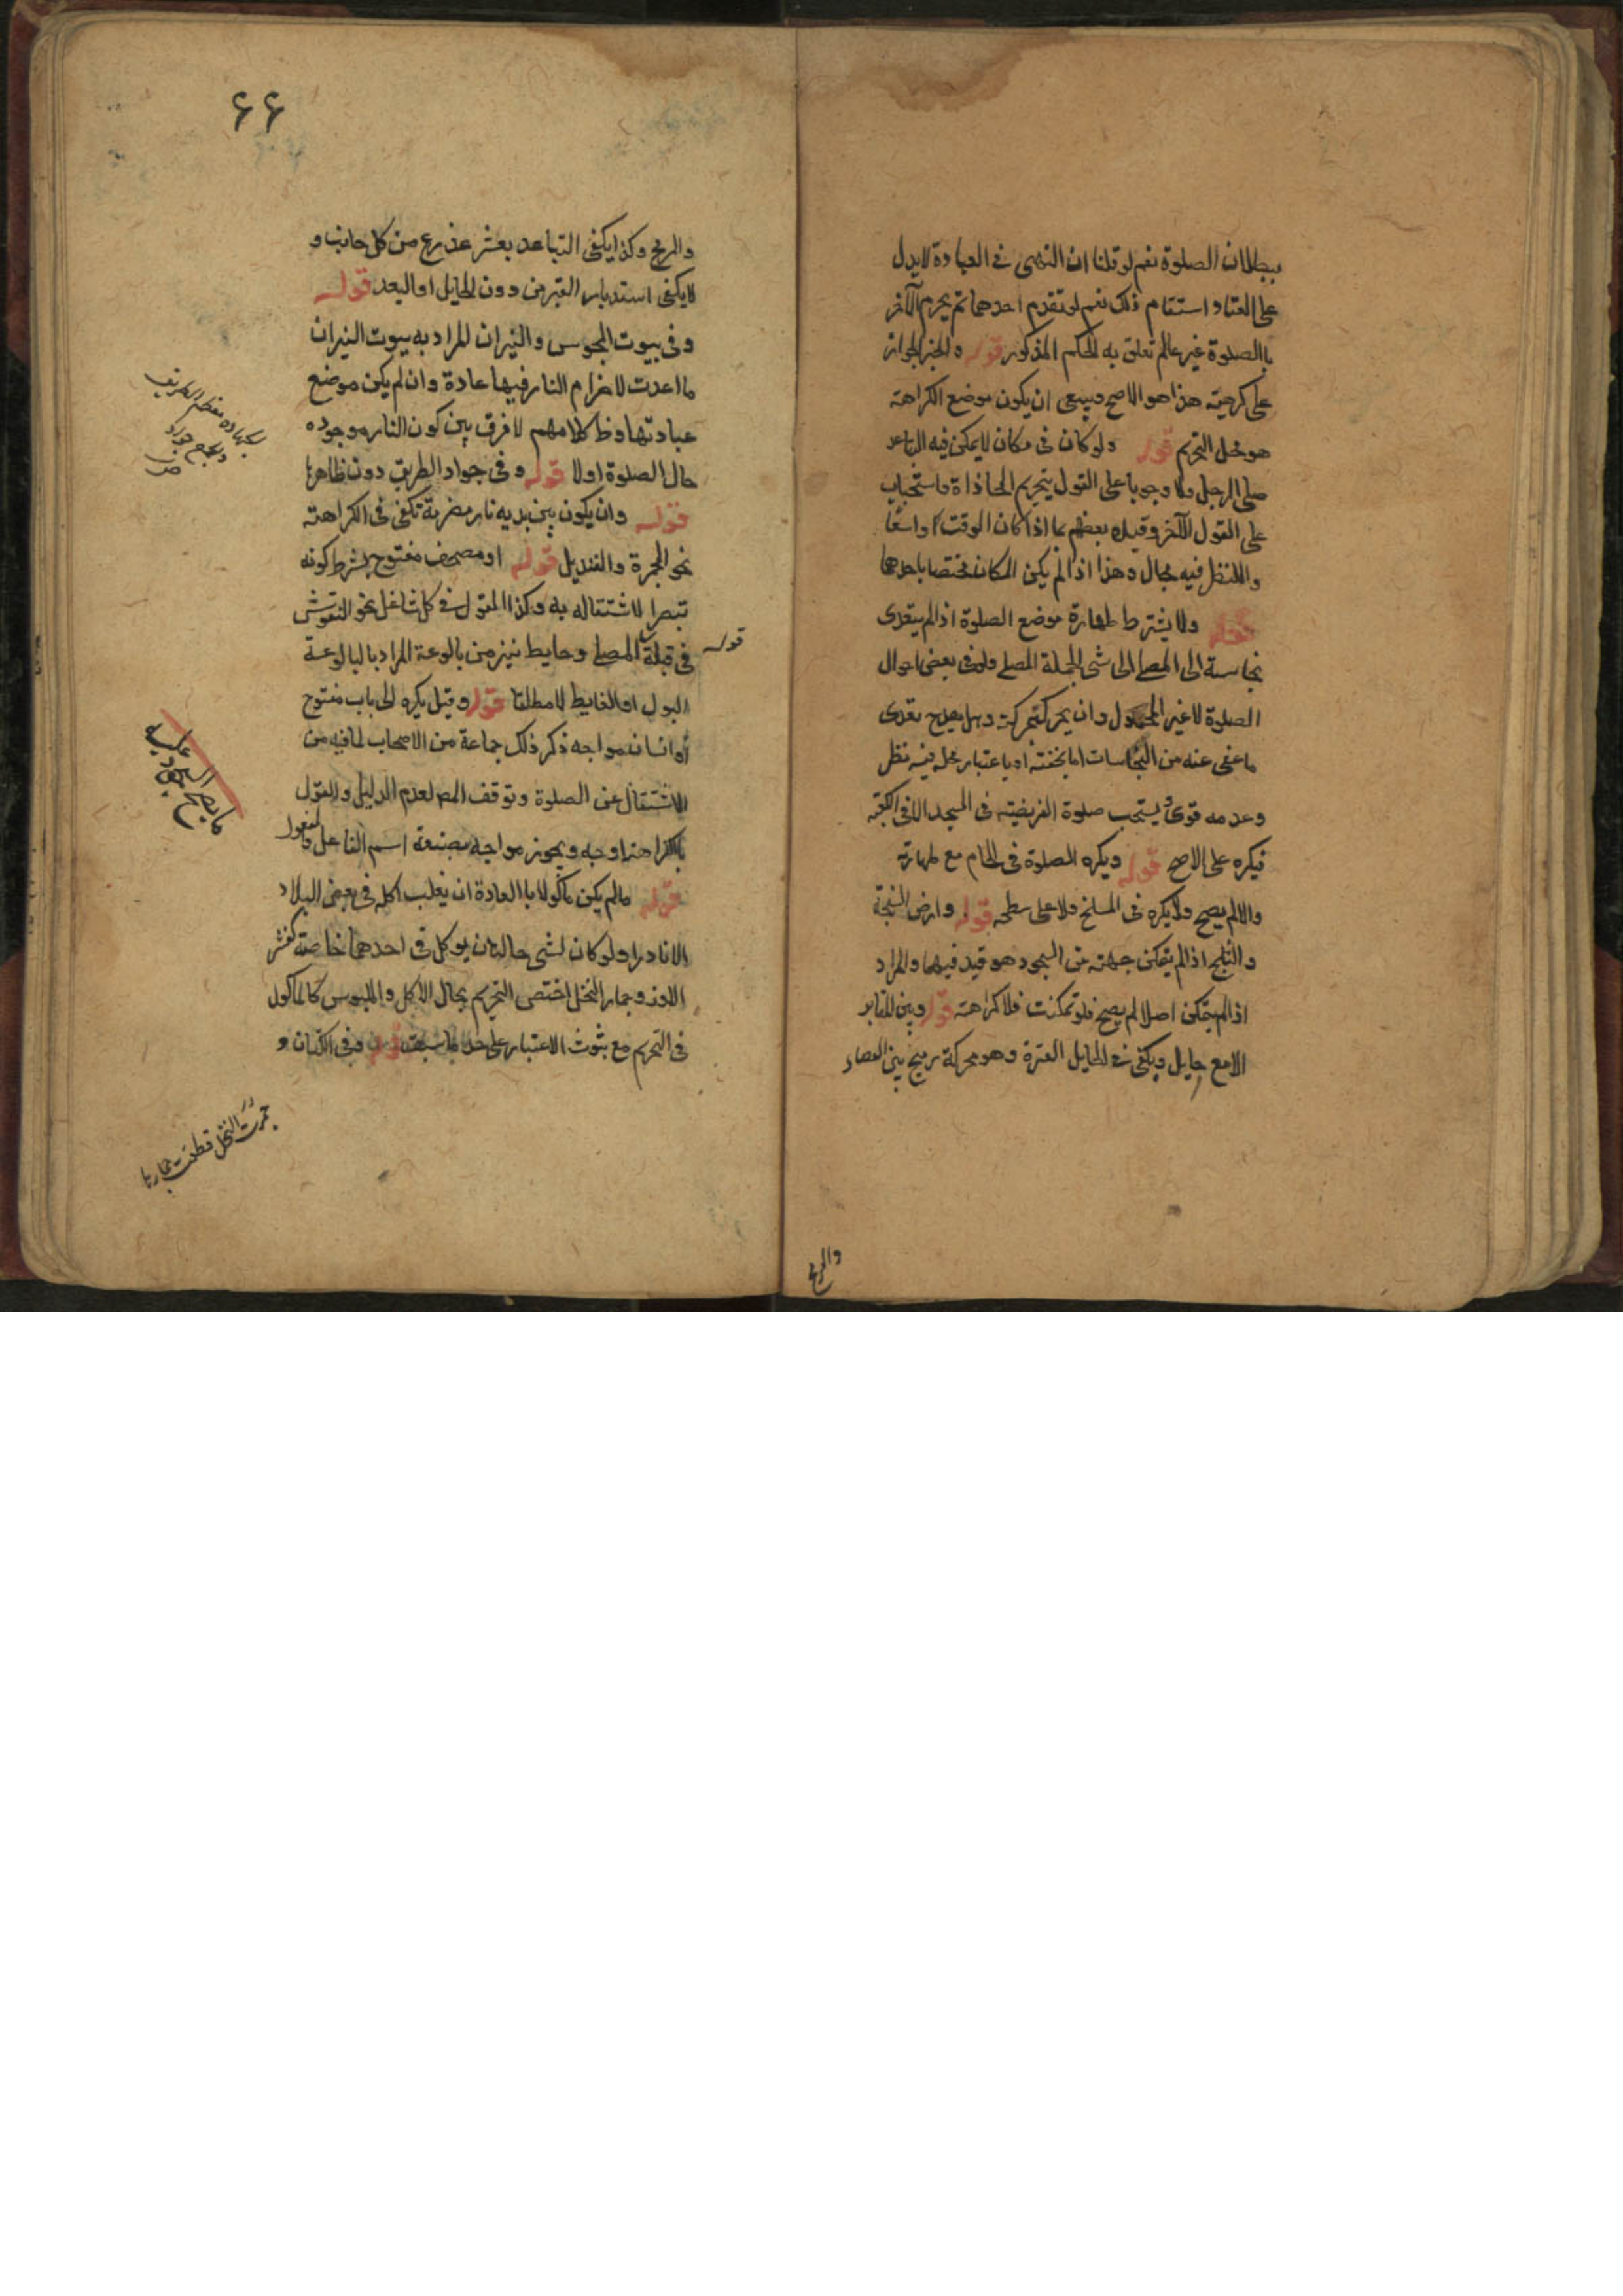 ببطلان الصلوة نعم لو قلنا ان النهى فى العبادة لا يدل
على الفساد استقام ذلك نعم لو تقدم احدهما ثم يحرم الآخر
باالصلوة غير عالم تعلق به الحكم المذكور قوله والحبر الجواز
على كرهية هذا هو الاصح وينبغى ان يكون موضع الكراهة
هو محل التحريم قوله ولو كان فى مكان لا يمكن فيه التباعد
صلى الرجل ولا وجوبا على القول بتحريم المحاذاة واستحباب
على القول الآخر وقيده بعضهم بما اذا كان الوقت واسعا
وللنظر فيه مجال وهذا اذا لم يكن المكان مختصا باحدهما
قوله ولا يشترط طهارة موضع الصلوة اذا لم يتعدى
نجاسة الى المصلى الى شى الجملة المصلى ولو فى بعض احوال
الصلوة لا غير المحمول وان يحرك بحركته وهل يقدح تعدى
ما عفى عنه من النجاسات اما بخفته او باعتبار محله فيه نظر
وعدمه قوى ويستحب صلوة الفريضة فى المسجد الا فى الكعبة
فيكره على الاصح قوله ويكره الصلوة فى الحمام مع طهارته
والا لم يصح ولا يكره فى المسلخ ولا على سطحه قوله وارض السبخة
والثلج اذا لم يتمكن جبهته من السجود هو قيد فيهما والمراد
اذا لم يتمكن اصلا لم يصح فلو تمكنت فلا كراهة قوله وبين المقابر
الا مع حايل ويكفى فى الحايل العنزة وهو محركة رميح بين العصا
والرمح
۶۶
والرمح وكذا يكفى التباعد بعشر عذرع من كل جانب و
لا يكفى استدبار القبر من دون الحايل او البعد قوله
وفى بيوت المجوس والنيران المراد به بيوت النيران
ما اعدت لاضرام النار فيها عادة وان لم يكن موضع
عبادتها وظ كلامهم لا فرق بين كون النار موجوده
حال الصلوة اولا قوله وفى جواد الطريق دون ظاهرها
قوله وان يكون بين يديه نار مضرمة تكفى فى الكراهة
نحو الجمرة والقنديل قوله او مصحف مفتوح بشرط كونه
تبصرا لاشتغاله به وكذا القول فى كل شاغل نحو النقوش
قوله
فى قبلة المصلى وحايط ينز من بالوعة المراد بالبالوعة
البول او الغايط لا مطلقا قوله وقيل يكره الى باب مفتوح
أو انسان مواجه ذكر ذلك جماعة من الاصحاب لما فيه من
الاشتغال عن الصلوة وتوقف المص لعدم الدليل والقول
باكراهة اوجه ويجوز مواجه بصيغة اسم الفاعل والمفعول
قوله مالم يكن مأكولا باالعادة ان يغلب اكله فى بعض البلاد
الا نادرا ولو كان لشى حالتان يوكل فى احدهما خاصة كقشر
اللوز وجمار النخل اختص التحريم بحال الاكل والملبوس كالماكول
فى التحريم مع ثبوت الاعتبار على حد ما سبقت قوله وفى الكتان و
معظم الطريق
والجمع جواد
ص
ما يصح السجود عليه
جمرت النخل قطعت جمارها